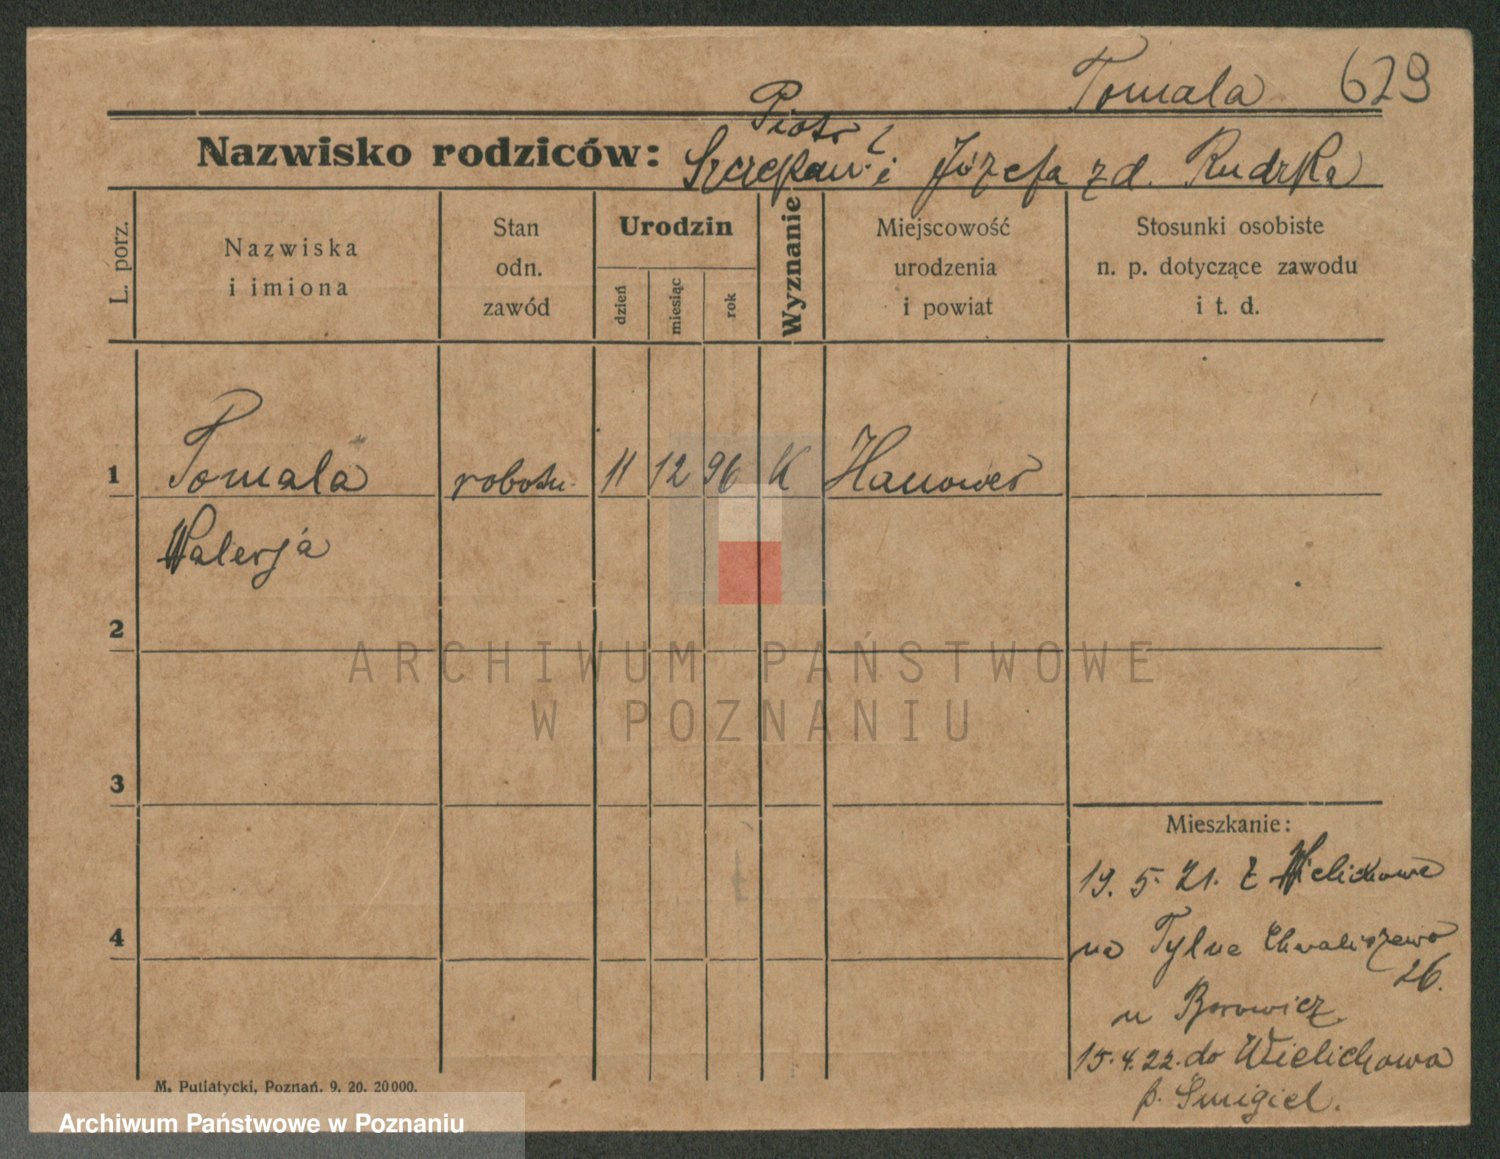 Tomala 629
Piotr
Nazwisko rodziców: Szczepan i Józefa zd. Rudzka
L. porz.
Nazwiska
i imiona
Stan
odn.
zawód
Urodzin
dzień
miesiąc
rok
Wyznanie
Miejscowość
urodzenia
i powiat
Stosunki osobiste
n. p. dotyczące zawodu
i t. d.
1 Tomala robotn. 11 12 96 K Hanower
Walerja
2
3
4
Mieszkanie:
19. 5. 21. z Wielichowa
na Tylne Chwaliszewo
26.
u Borowicz
15.4.22. do Wielichowa
p. Śmigiel.
M. Putiatycki, Poznań. 9. 20. 20000.
ARCHIWUM PAŃSTWOWE
W POZNANIU
Archiwum Państwowe w Poznaniu